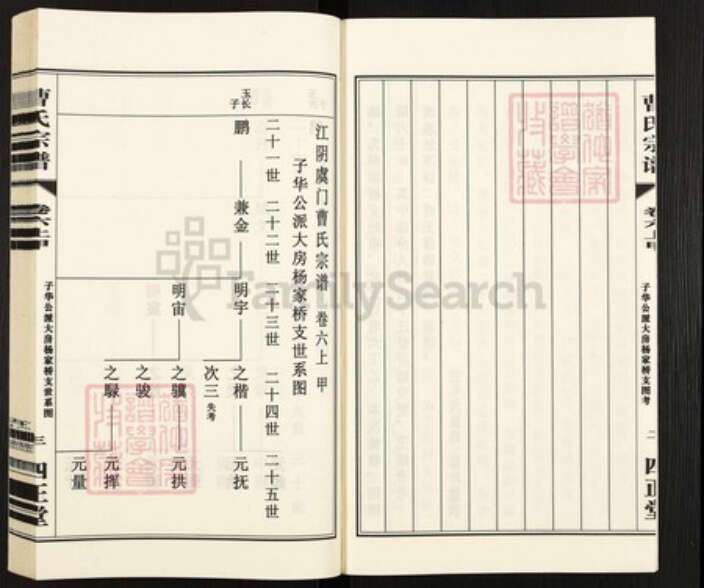 曹氏宗谱
卷六上甲
子华公派大房杨家桥支图考
二
四正堂
江阴虞门曹氏宗谱 卷六上 甲
子华公派大房杨家桥支世系图
二十一世 二十二世 二十三世 二十四世 二十五世
玉长子
鹏 兼金 明宇 之楷 元抚
次三 失考
明宙 之骥 元拱
之骏
之騄 元挥
元量
曹氏宗谱
卷六上甲
子华公派大房杨家桥支世系图
三
四正堂
FamilySearch